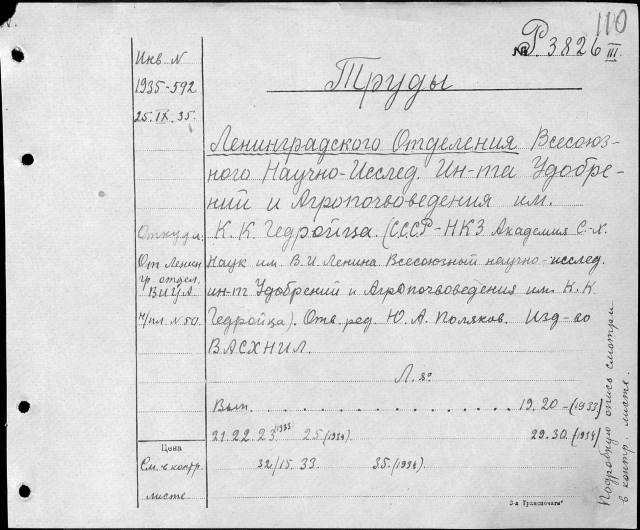 110
№ Р. 3826
III
Инв. N
1935-592
25.IX.35.
Труды
Ленинградского Отделения Всесоюз-
ного Научно-Исслед. Ин-та Удобре-
ний и Агропочвоведения им.
Откуда:
К. К. Гедройца. (СССР-НКЗ Академия С-Х.
От Ленин
Наук им. В.И. Ленина Всесоюзный научно-исслед.
гр. отдел.
ВИУА
ин-т Удобрений и Агропочвоведения им. К. К.
н/пл. N 50.
Гедройца). Отв. ред. Ю. А. Поляков. Изд-во
ВАСХНИЛ.
Л. 8°
Вып. . . . . . . . . . . . . . . 19. 20 - (1933)
21. 22. 23 1933 25 (1934). 29. 30. (1934)
Цена
См. в контр.
листе
32/15. 33. 35. (1934).
Подробную опись смотри
в контр. листе.